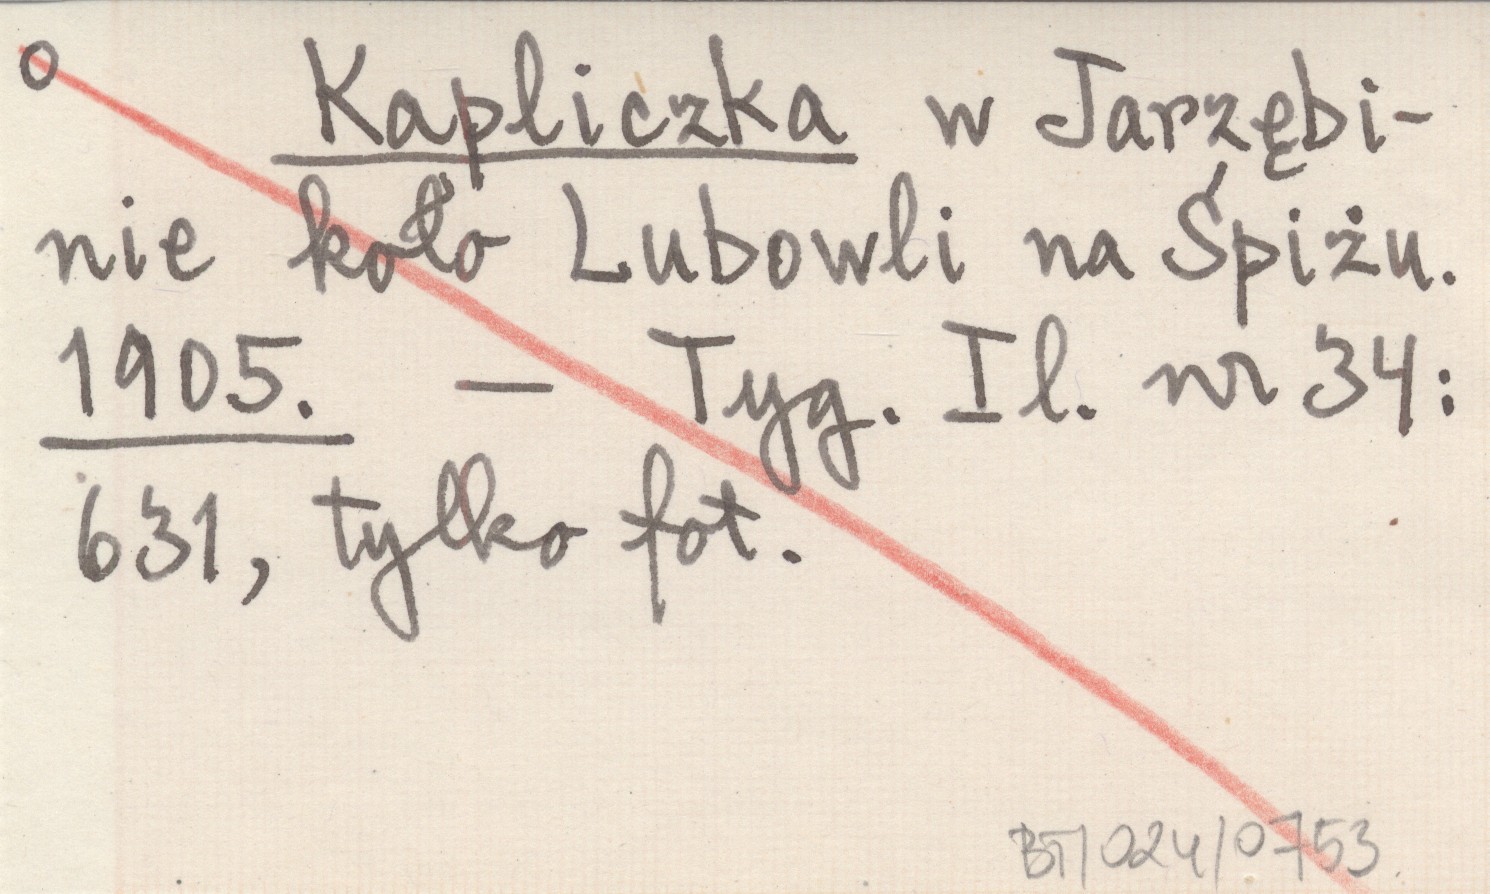 o Kapliczka w Jarzębi-
nie koło Lubowli na Śpiżu.
1905. — Tyg. Il. nr 34:
631, tylko fot.
BT/024/0753